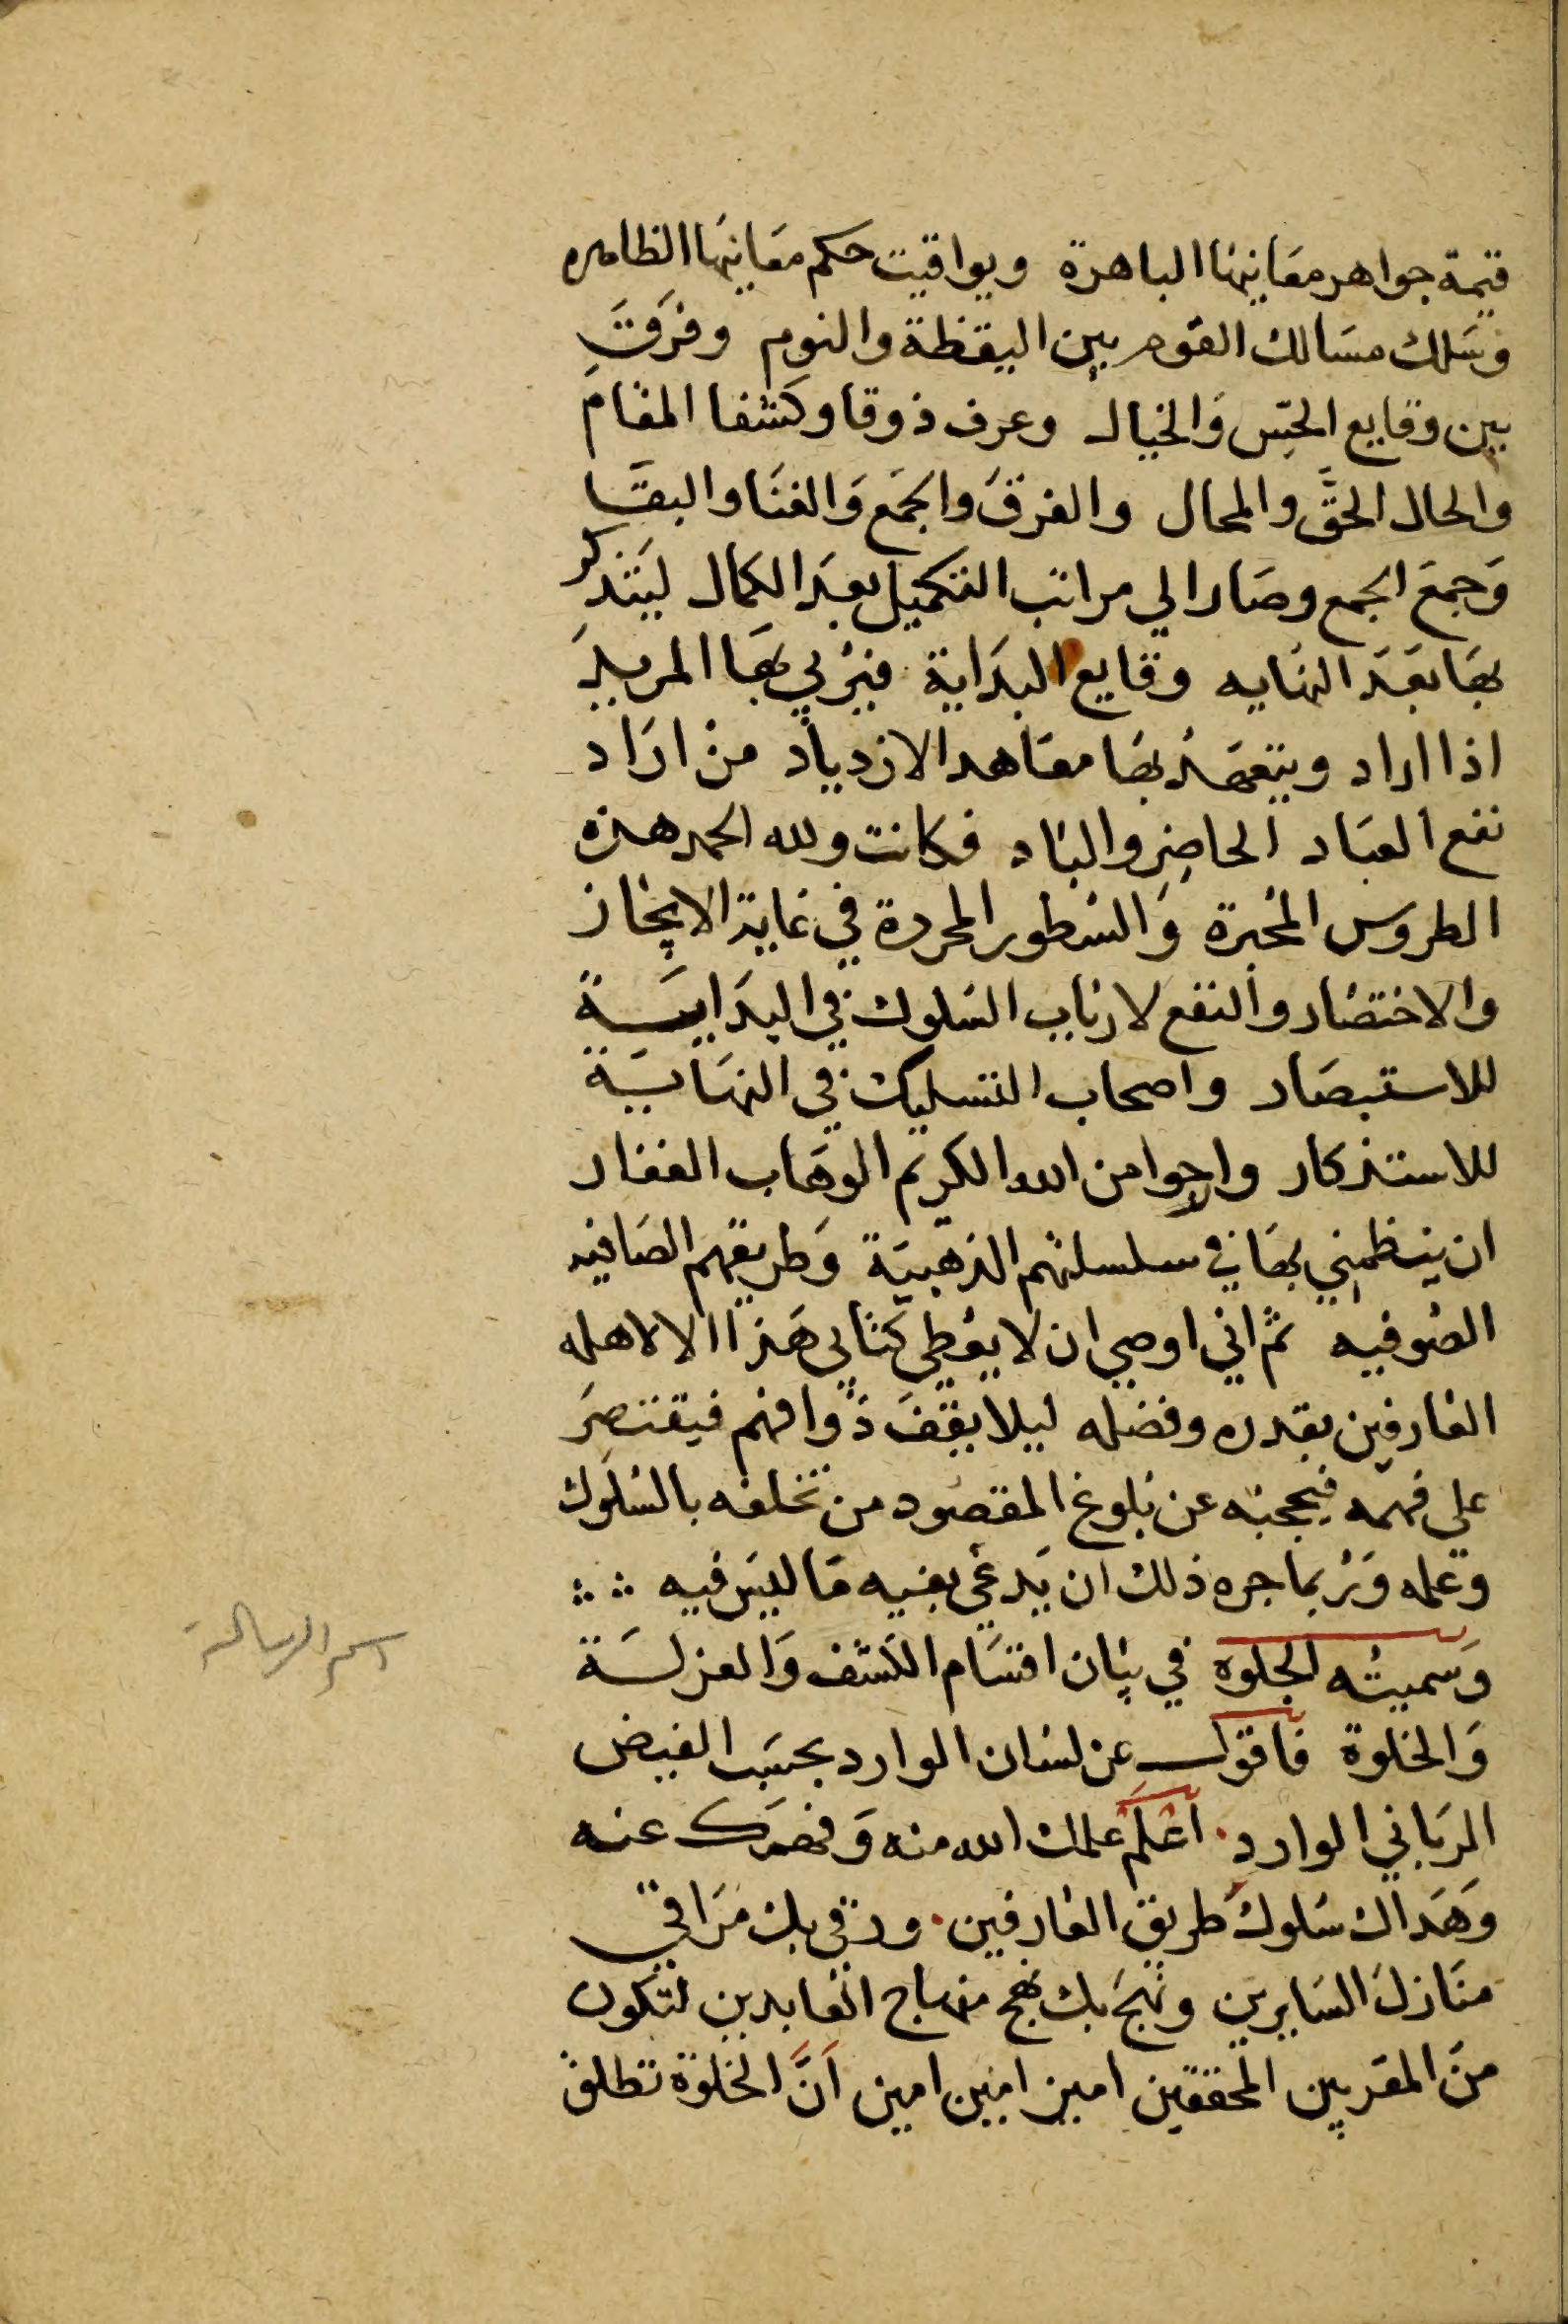 قيمة جواهر معانيها الباهرة ويواقيت حكم معانيها الظاهره
وسَلك مسَالك القوم بين اليقظة والنوم وفرَقَ
بين وقايع الحِس وَالخيال وعرف ذوقا وكشفا المقام
والحال الحقَّ والمحال والفرقَ والجمَع وَالفنَا والبقَا
وَجمعَ الجمع وصَار الي مراتب التكميل بعدَ الكمال ليتَذكر
بهَا بعَدَ النهايه وقايع البدَاية فيرُبي بهَا المريدَ
اذا اراد ويتعهَدُ بهَا معَاهد الازدياد منْ ارَاد
نفع العبَاد الحاضِر والباد فكانت ولله الحمد هذه
الطروس المخبرة وَالسُطور المحررة في غاية الايجاز
والاختصَار والنفع لارباب السُلوك في البدَايـــة
للاستبصَار واصحاب التسليك في النهَايَـة
للاستذكار وارجوا من الله الكريم الوهَاب الغفار
ان ينظمني بهَا في سلسلتهم الذهبيَة وَطريقهم الصَافيه
الصُوفيه ثم اني اوصي ان لا يعُطي كتابي هَذا الا لاهله
العَارفين بقدره وفضله ليلا يقِفَ ذُوا فهم فيقتصِرَ
علي فهمه فيحجبَه عن بُلوغ المقصُود من تخلقه بالسُلوك
وعمله وَرُبما جره ذلك ان يَدعي بفيه مَا ليسَ فيه
وَسميتُه الجلوه في بيَان اقسَام الكشف وَالعزلـَة
وَالخلوة فاقول عن لسَان الوارد بحسَب الفيض
الربَاني الوارد . اعْلَمْ علمك الله منه وَفهمَك عنه
وَهَداك سُلوك طريق العَارفين . ورقي بك مَراقي
منَازلَ السَايرين ونهجَ بك نهج منهاج العابدين لتكون
منَ المقربين المحققين امين امين امين انَّ الخلوَة تطلق
اسم الرسالة